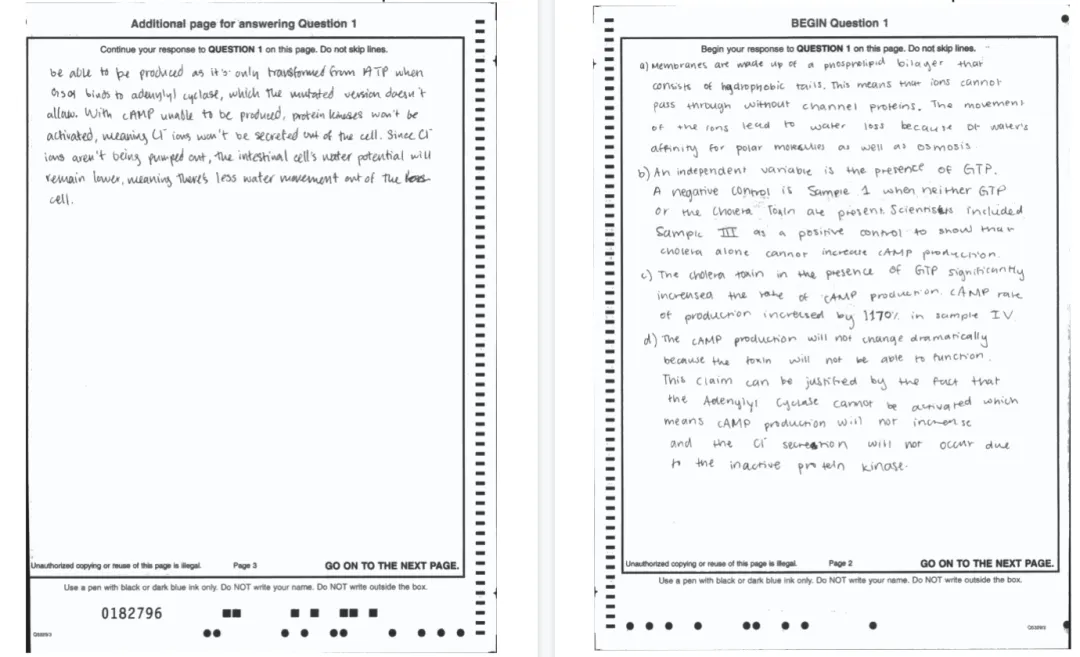 Additional page for answering Question 1
Continue your response to QUESTION 1 on this page. Do not skip lines.
be able to be produced as it's only transformed from ATP when
Gsα binds to adenylyl cyclase, which the mutated version doesn't
allow. With cAMP unable to be produced, protein kinases won't be
activated, meaning Cl⁻ ions won't be secreted out of the cell. Since Cl⁻
ions aren't being pumped out, the intestinal cell's water potential will
remain lower, meaning there's less water movement out of the
cell.
Unauthorized copying or reuse of this page is illegal.
Page 3
GO ON TO THE NEXT PAGE.
Use a pen with black or dark blue ink only. Do NOT write your name. Do NOT write outside the box.
0182796
BEGIN Question 1
Begin your response to QUESTION 1 on this page. Do not skip lines.
a) Membranes are made up of a phospholipid bilayer that
consists of hydrophobic tails. This means that ions cannot
pass through without channel proteins. The movement
of the ions lead to water loss because of water's
affinity for polar molecules as well as osmosis.
b) An independent variable is the presence of GTP.
A negative control is Sample 1 when neither GTP
or the Cholera Toxin are present. Scientists included
Sample III as a positive control to show that
cholera alone cannot increase cAMP production.
c) The cholera toxin in the presence of GTP significantly
increased the rate of cAMP production. cAMP rate
of production increased by 1170% in sample IV
d) The cAMP production will not change dramatically
because the toxin will not be able to function.
This claim can be justified by the fact that
the Adenylyl Cyclase cannot be activated which
means cAMP production will not increase
and the Cl⁻ secretion will not occur due
to the inactive protein kinase.
Unauthorized copying or reuse of this page is illegal.
Page 2
GO ON TO THE NEXT PAGE.
Use a pen with black or dark blue ink only. Do NOT write your name. Do NOT write outside the box.